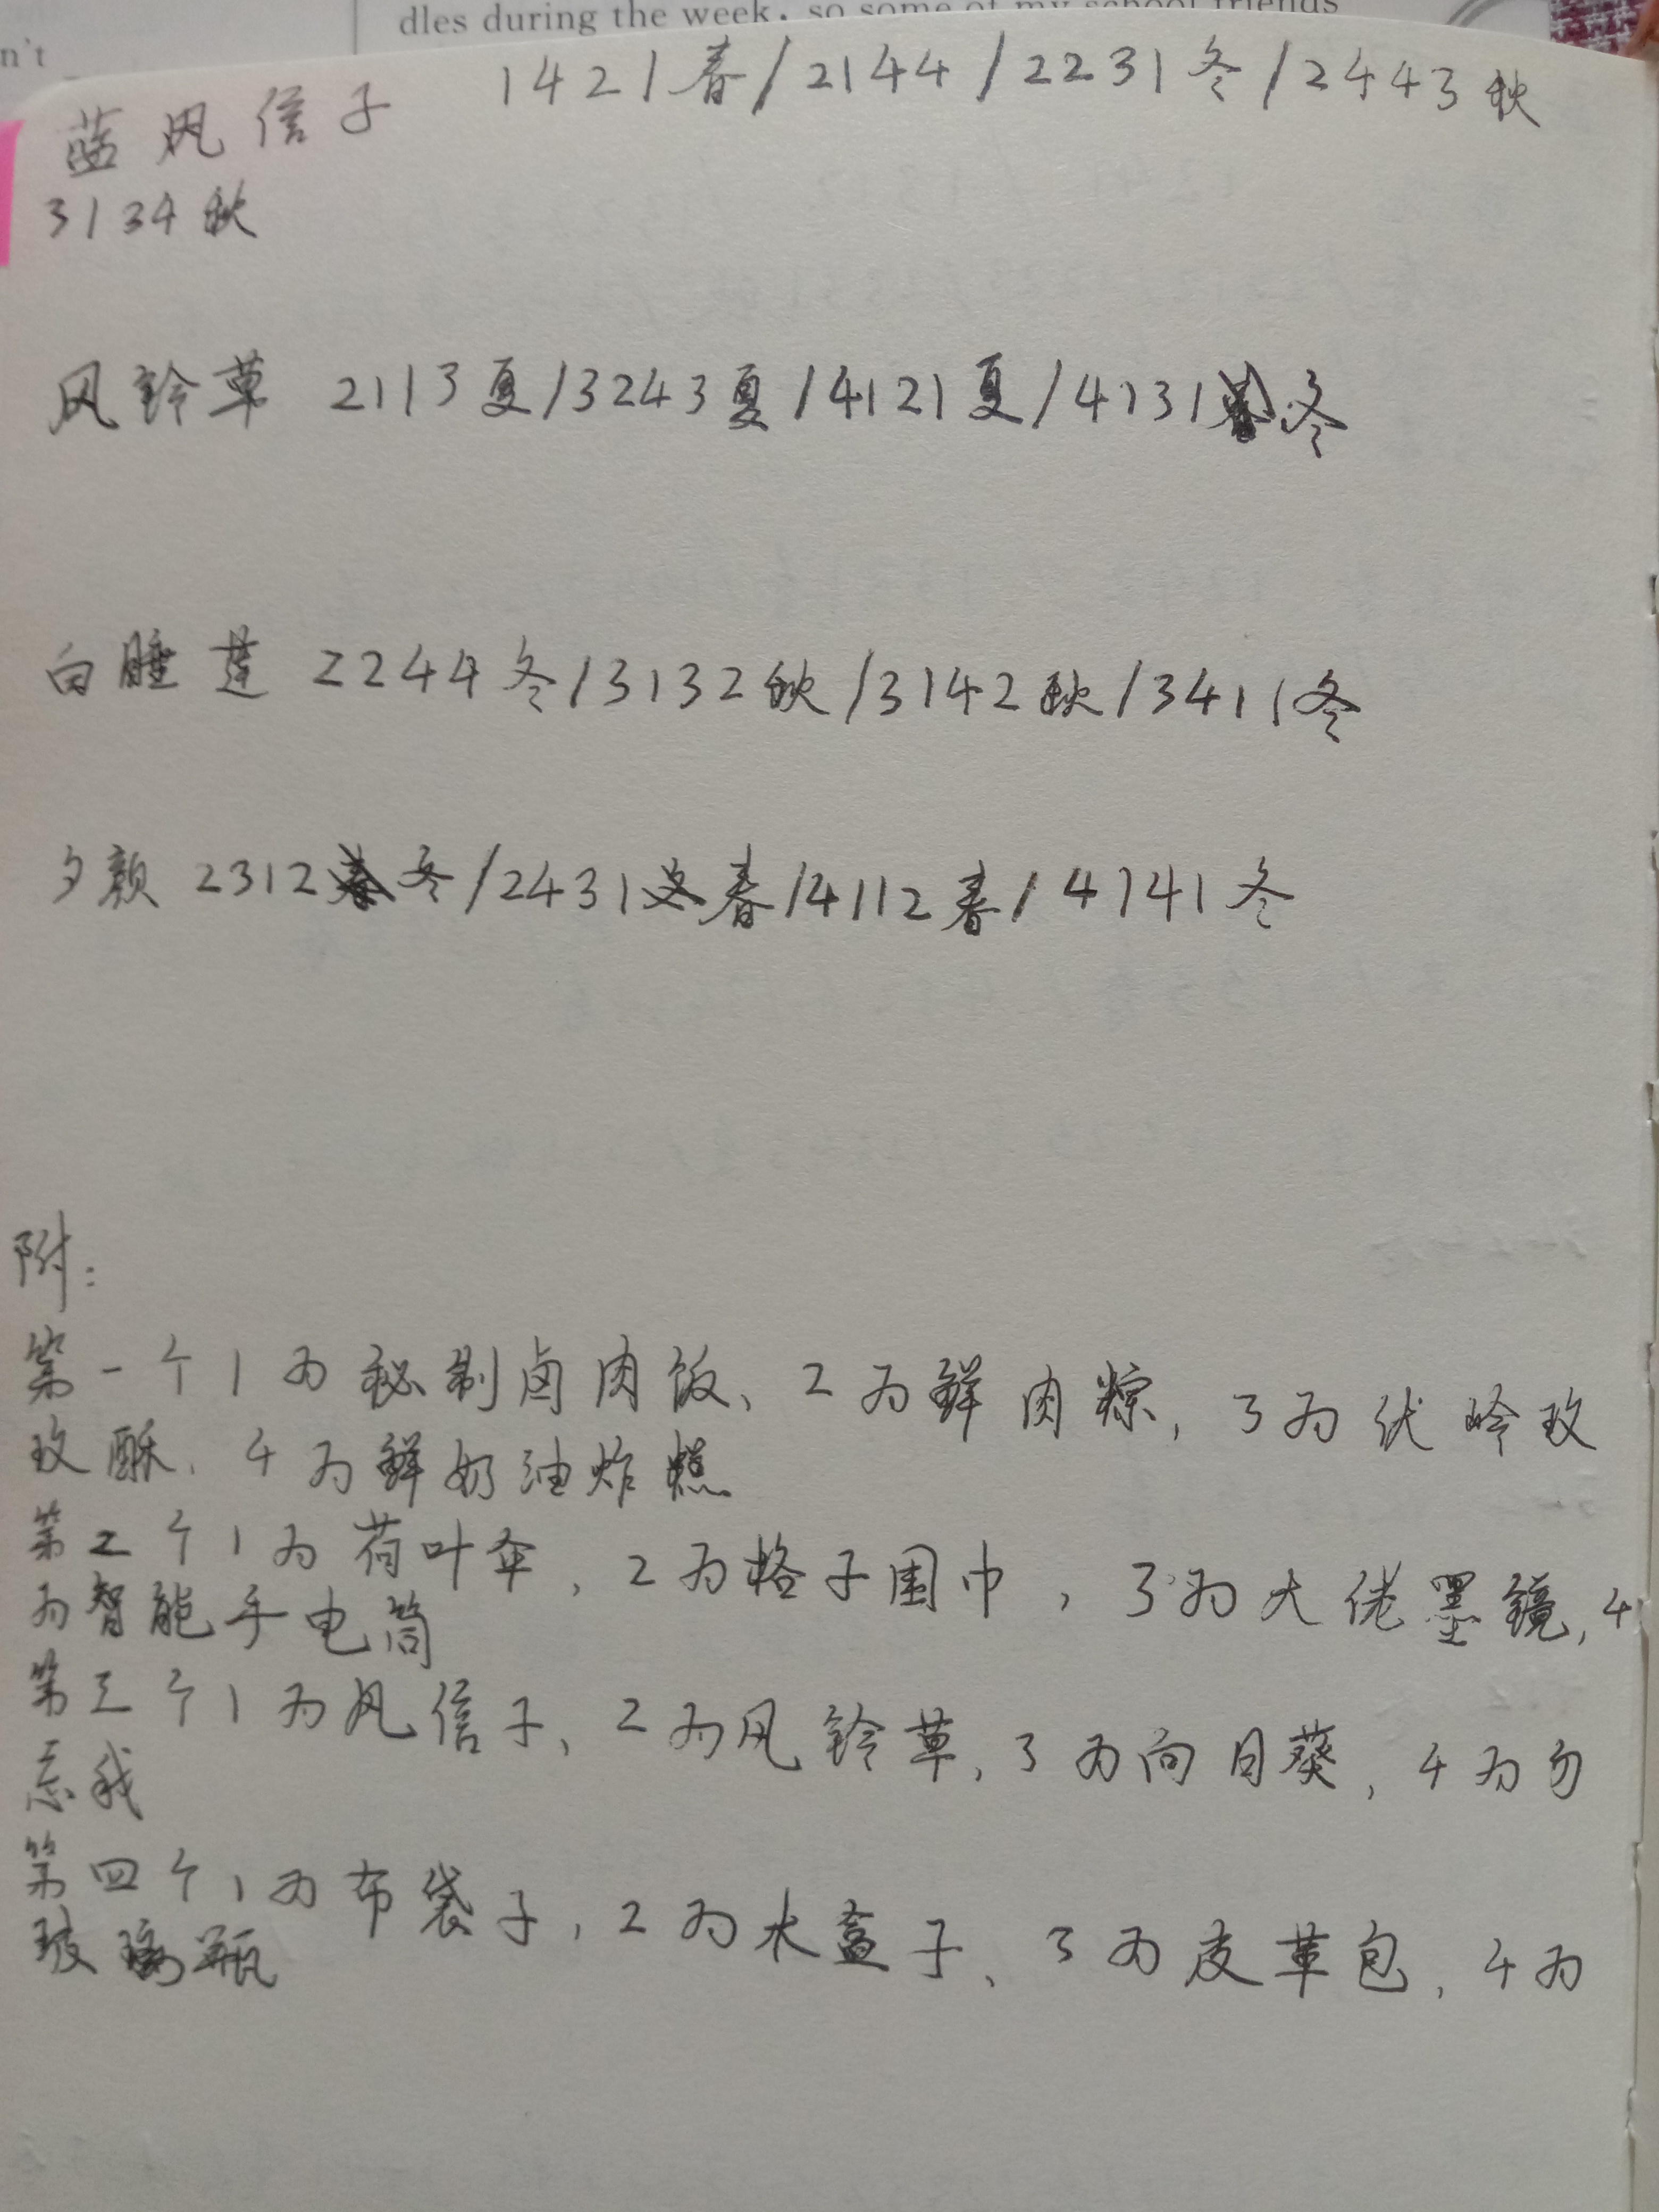 dles during the week, so some of my school friends
n't
蓝风信子 1421春/2144/2231冬/2443秋
3134秋
风铃草 2113夏/3243夏/4121夏/4131冬
白睡莲 2244冬/3132秋/3142秋/3411冬
夕颜 2312冬/2431春/4112春/4141冬
附:
第一个1为秘制卤肉饭、2为鲜肉粽,3为伏呤玫
玫酥、4为鲜奶油炸糕
第二个1为荷叶伞,2为格子围巾,3为大佬墨镜,4
为智能手电筒
第三个1为风信子、2为风铃草,3为向日葵,4为勿
忘我
第四个1为布袋子,2为木盒子、3为皮革包,4为
玻璃瓶